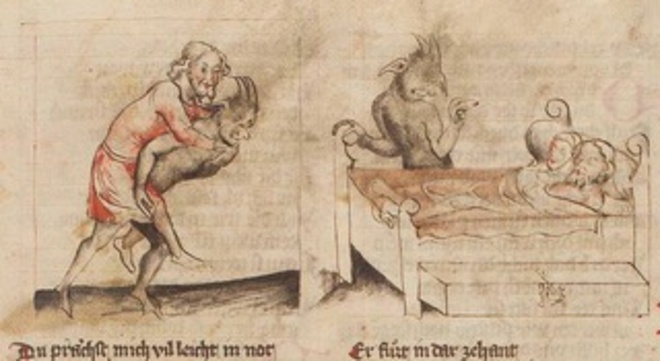 Du prächst mich vil leicht in not
Er fürt in dar zehant